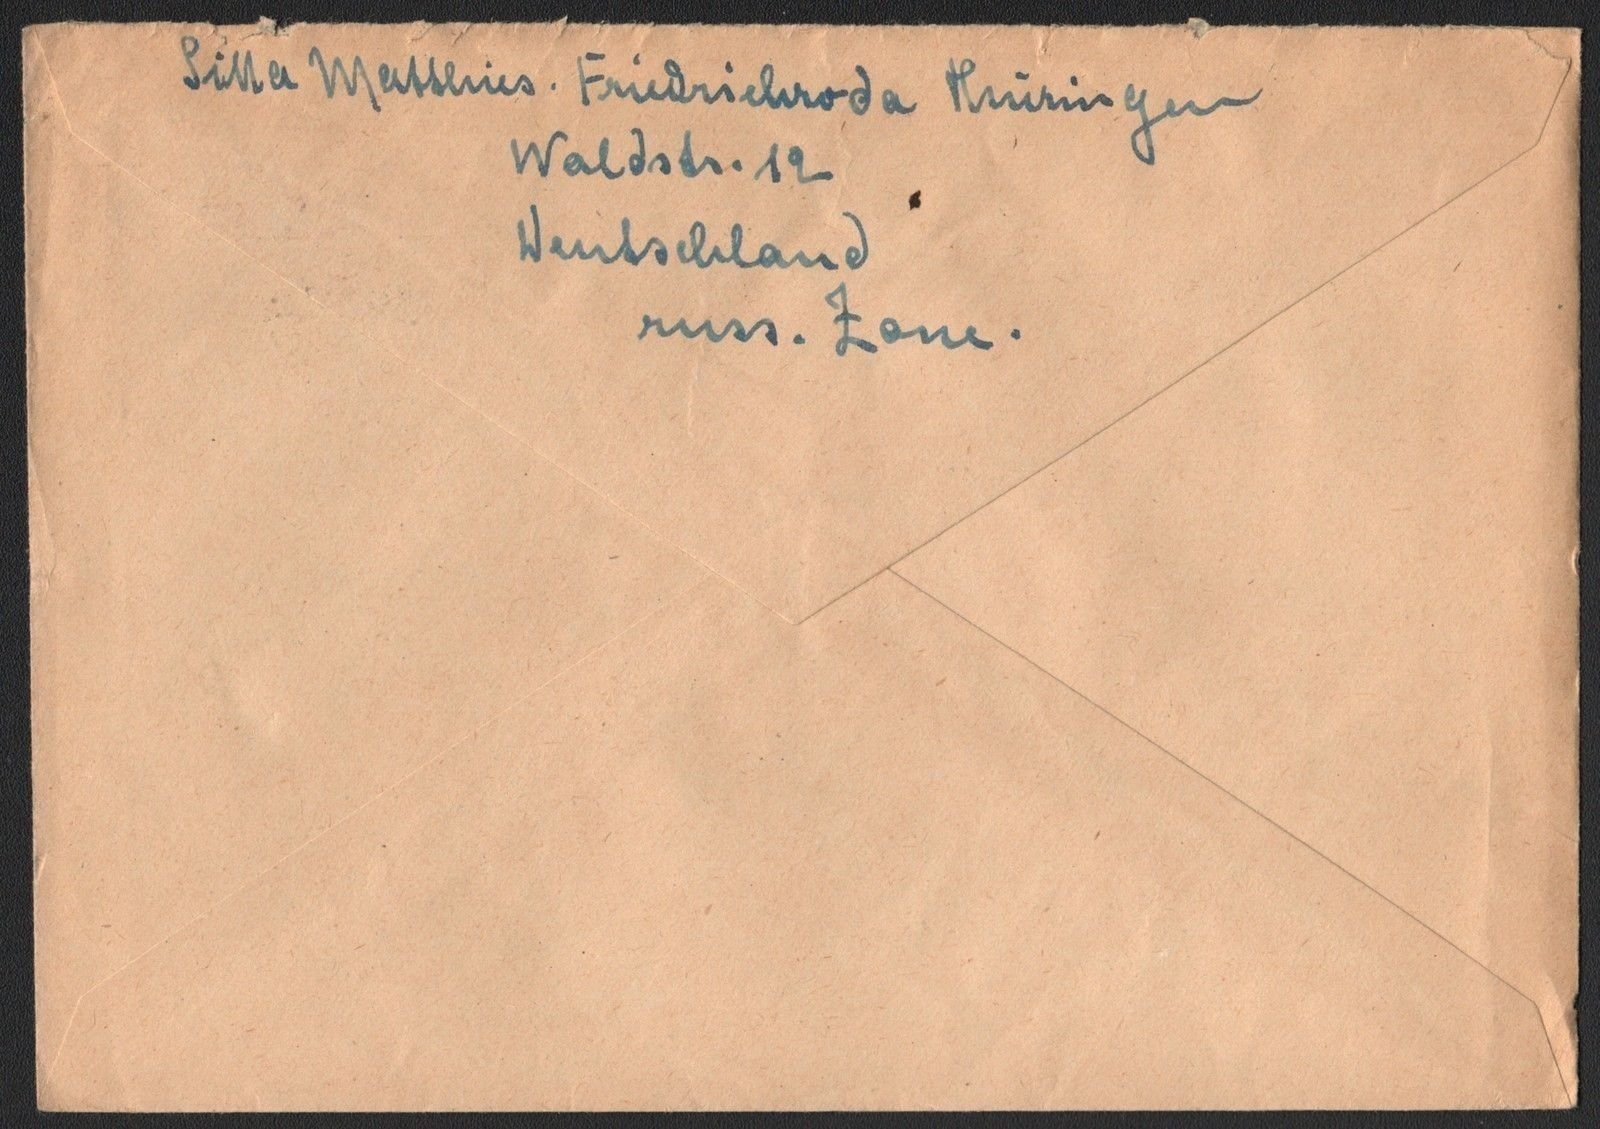 Sitta Matthies. Friedrichroda Thüringen
Waldstr. 12
Deutschland
russ. Zone.